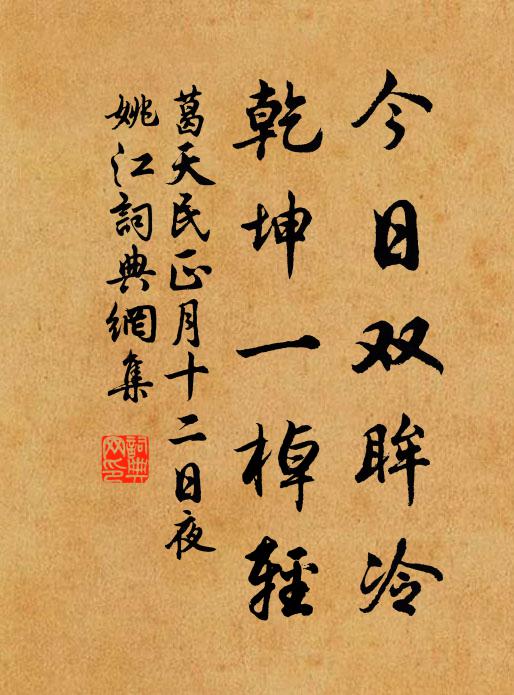 今日双眸冷
乾坤一棹輕
葛天民正月十二日夜
姚江詞典網集
詞典网印